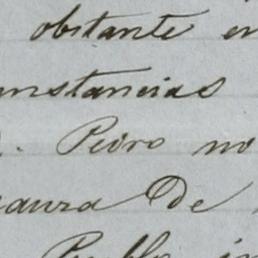 obstante en
unstancias
. Pedro no
aura de
Pueblo in